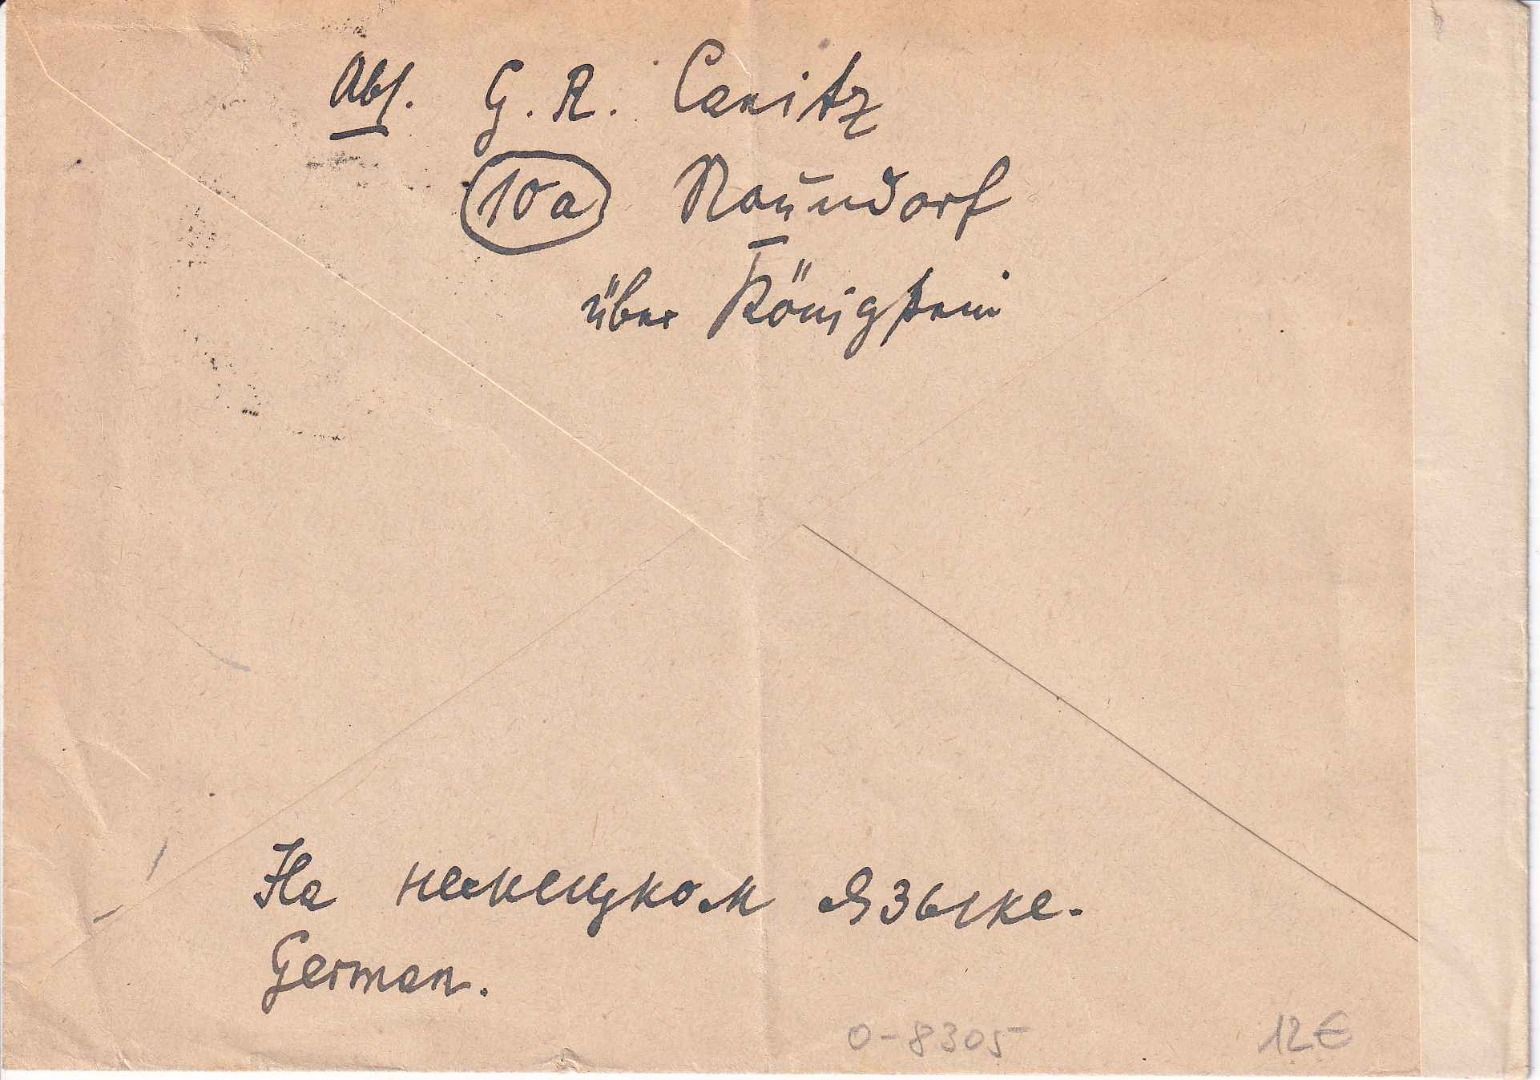 Abs. G. R. Canitz
10a Naundorf
über Königstein
На немецком языке.
German.
0-8305 12€